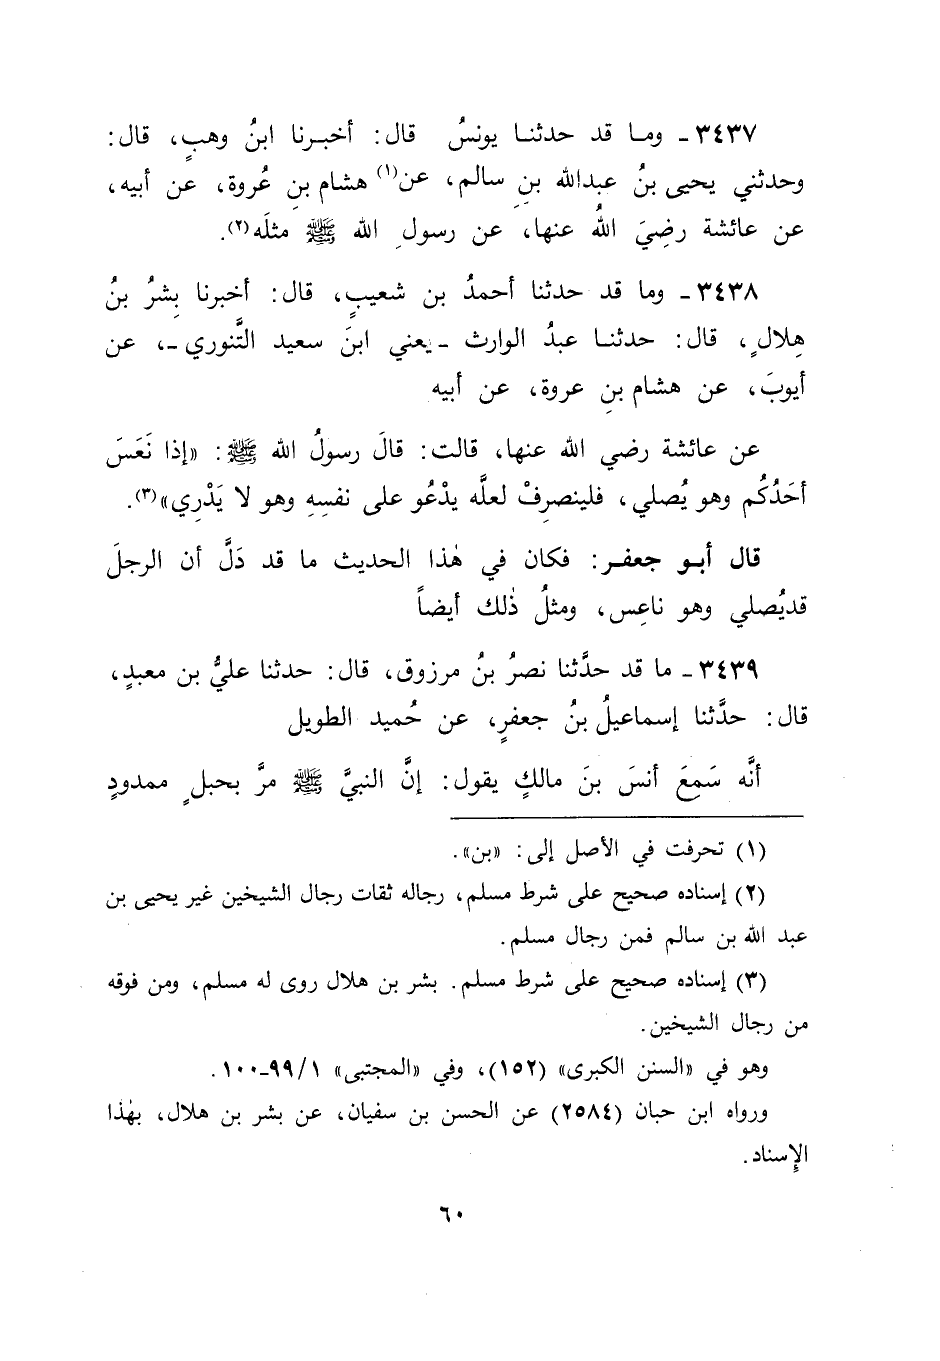 ٣٤٣٧ ـ وما قد حدثنا يونسُ قال: أخبرنا ابنُ وهبٍ، قال:
وحدثني يحيى بنُ عبدالله بنِ سالم، عن(١) هشام بنِ عُروة، عن أبيه،
عن عائشة رضِيَ اللهُ عنها، عن رسولِ الله ﷺ مثلَه(٢).
٣٤٣٨ ـ وما قد حدثنا أحمدُ بن شعيبٍ، قال: أخبرنا بِشرُ بنُ
هِلالٍ، قال: حدثنا عبدُ الوارث ـ يعني ابنَ سعيد التَّنوري ـ، عن
أيوبَ، عن هشام بنِ عروة، عن أبيه
عن عائشة رضي الله عنها، قالت: قالَ رسولُ الله ﷺ: «إذا نَعَسَ
أحَدُكُم وهو يُصلي، فلينصرِفْ لعلَّه يدْعُو على نفسِهِ وهو لا يَدْرِي»(٣).
قال أبو جعفر: فكان في هٰذا الحديث ما قد دَلَّ أن الرجلَ
قديُصلي وهو ناعِس، ومثلُ ذٰلك أيضاً
٣٤٣٩ ـ ما قد حدَّثنا نصرُ بنُ مرزوق، قال: حدثنا عليُّ بن معبدٍ،
قال: حدَّثنا إسماعيلُ بنُ جعفرٍ، عن حُميد الطويل
أنَّه سَمِعَ أنسَ بنَ مالكٍ يقول: إنَّ النبيَّ ﷺ مرَّ بحبلٍ ممدودٍ
(١) تحرفت في الأصل إلى: «بن».
(٢) إسناده صحيح على شرط مسلم، رجاله ثقات رجال الشيخين غير يحيى بن
عبد الله بن سالم فمن رجال مسلم.
(٣) إسناده صحيح على شرط مسلم. بشر بن هلال روى له مسلم، ومن فوقه
من رجال الشيخين.
وهو في «السنن الكبرى» (١٥٢)، وفي «المجتبى» ١/٩٩ـ١٠٠.
ورواه ابن حبان (٢٥٨٤) عن الحسن بن سفيان، عن بشر بن هلال، بهٰذا
الإِسناد.
٦٠